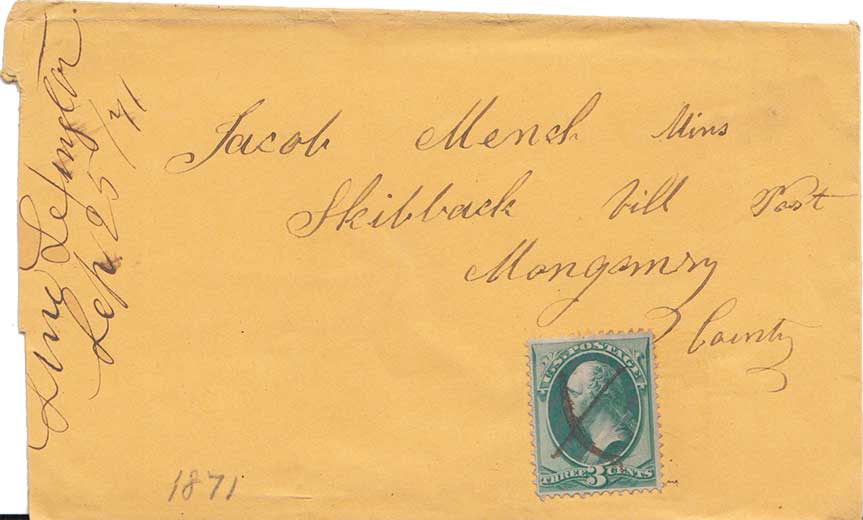 Jacob Mensh Mins
Skibback vill Post
Mongomry
County
Line Lexington
Sep 25/71
U.S. POSTAGE
THREE 3 CENTS
1871